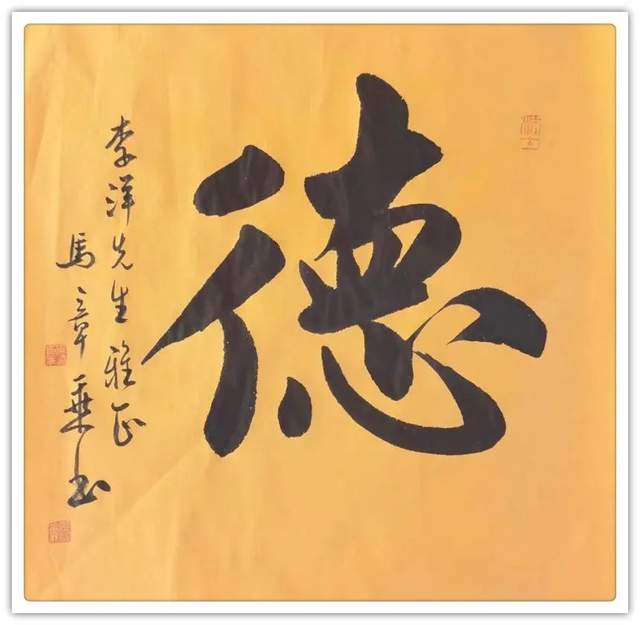 德
李洋先生雅正
馬章乘书